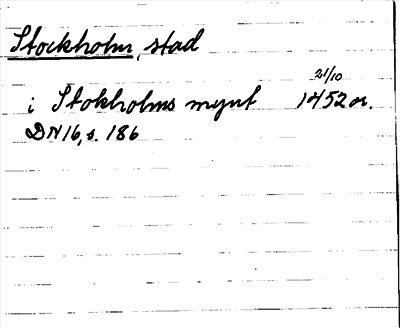 Stockholm, stad
21/10
i Stokholms mynt 1452 or.
DN 16, s. 186